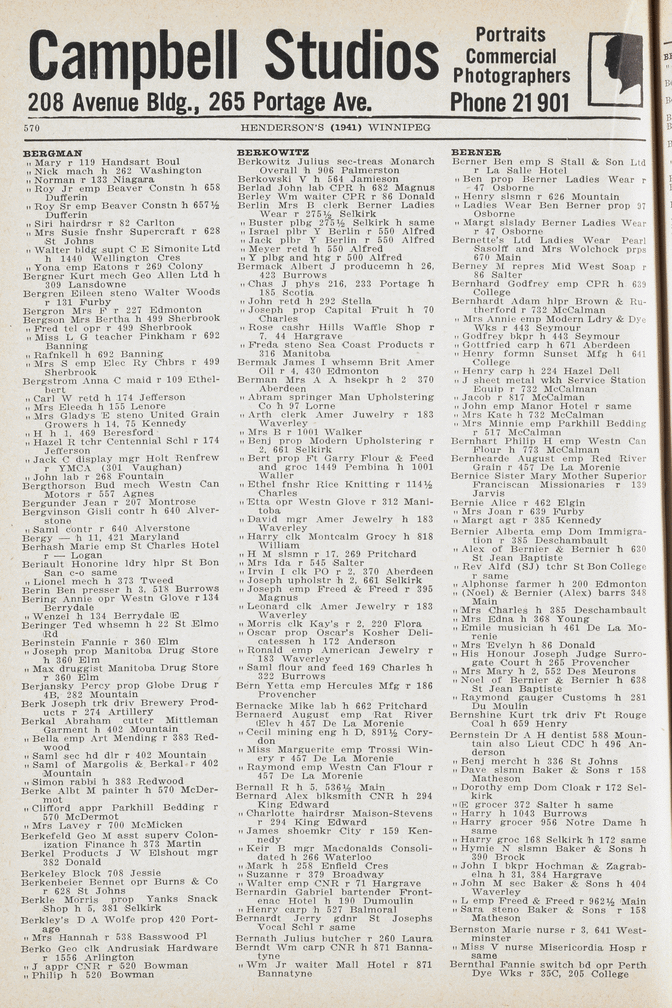 Campbell Studios
Portraits
Commercial
Photographers
208 Avenue Bldg., 265 Portage Ave.
Phone 21 901
570
HENDERSON'S (1941) WINNIPEG
BERGMAN
" Mary r 119 Handsart Boul
" Nick mach h 262 Washington
" Norman r 133 Niagara
" Roy Jr emp Beaver Constn h 658
Dufferin
" Roy Sr emp Beaver Constn h 657½
Dufferin
" Siri hairdrsr r 82 Carlton
" Mrs Susie fnshr Supercraft r 628
St Johns
" Walter bldg supt C E Simonite Ltd
h 1440 Wellington Cres
" Yona emp Eatons r 269 Colony
Bergner Kurt mech Geo Allen Ltd h
309 Lansdowne
Bergren Eileen steno Walter Woods
r 131 Furby
Bergron Mrs F r 227 Edmonton
Bergson Mrs Bertha h 499 Sherbrook
" Fred tel opr r 499 Sherbrook
" Miss L G teacher Pinkham r 692
Banning
" Rafnkell h 692 Banning
" Mrs S emp Elec Ry Chbrs r 499
Sherbrook
Bergstrom Anna C maid r 109 Ethel-
bert
" Carl W retd h 174 Jefferson
" Mrs Eleeda h 155 Lenore
" Mrs Gladys E steno United Grain
Growers h 14, 75 Kennedy
" H h 1, 469 Beresford
" Hazel R tchr Centennial Schl r 174
Jefferson
" Jack C display mgr Holt Renfrew
r YMCA (301 Vaughan)
" John lab r 268 Fountain
Bergthorson Bud mech Westn Can
Motors r 557 Agnes
Bergunder Jean r 207 Montrose
Bergvinson Gisli contr h 640 Alver-
stone
" Saml contr r 640 Alverstone
Bergy — h 11, 421 Maryland
Berhash Marie emp St Charles Hotel
r — Logan
Beriault Honorine ldry hlpr St Bon
San c-o same
" Lionel mech h 373 Tweed
Berin Ben presser h 3, 518 Burrows
Bering Annie opr Westn Glove r 134
Berrydale
" Wenzel h 134 Berrydale E
Beringer Ted whsemn h 22 St Elmo
Rd
Bernstein Fannie r 360 Elm
" Joseph prop Manitoba Drug Store
h 360 Elm
" Max druggist Manitoba Drug Store
r 360 Elm
Berjansky Percy prop Globe Drug r
4B, 282 Mountain
Berk Joseph trk driv Brewery Prod-
ucts r 274 Artillery
Berkal Abraham cutter Mittleman
Garment h 402 Mountain
" Bella emp Art Mending r 383 Red-
wood
" Saml sec hd dlr r 402 Mountain
" Saml of Margolis & Berkal r 402
Mountain
" Simon rabbi h 383 Redwood
Berke Albt M painter h 570 McDer-
mot
" Clifford appr Parkhill Bedding r
570 McDermot
" Mrs Lavey r 700 McMicken
Berkefeld Geo M asst superv Colon-
ization Finance h 373 Martin
Berkel Products J W Elshout mgr
382 Donald
Berkeley Block 708 Jessie
Berkenbeier Bennet opr Burns & Co
r 628 St Johns
Berkle Morris prop Yanks Snack
Shop h 5, 381 Selkirk
Berkley's D A Wolfe prop 420 Port-
age
" Mrs Hannah r 538 Basswood Pl
Berko Geo clk Andrusiak Hardware
r 1556 Arlington
" J appr CNR r 520 Bowman
" Philip h 520 Bowman
BERKOWITZ
Berkowitz Julius sec-treas Monarch
Overall h 906 Palmerston
Berkowski V h 564 Jamieson
Berlad John lab CPR h 682 Magnus
Berley Wm waiter CPR r 86 Donald
Berlin Mrs B clerk Berner Ladies
Wear r 275½ Selkirk
" Buster plbg 275½ Selkirk h same
" Israel plbr Y Berlin r 550 Alfred
" Jack plbr Y Berlin r 550 Alfred
" Meyer retd h 550 Alfred
" Y plbg and htg r 500 Alfred
Bermack Albert J producemn h 26,
423 Burrows
" Chas J phys 216, 233 Portage h
185 Scotia
" John retd h 292 Stella
" Joseph prop Capital Fruit h 70
Charles
" Rose cashr Hills Waffle Shop r
7, 44 Hargrave
" Freda steno Sea Coast Products r
316 Manitoba
Bermak James I whsemn Brit Amer
Oil r 4, 430 Edmonton
Berman Mrs A A hsekpr h 2 370
Aberdeen
" Abram springer Man Upholstering
Co h 97 Lorne
" Arth clerk Amer Juwelry r 183
Waverley
" Mrs B r 1001 Walker
" Benj prop Modern Upholstering r
2, 661 Selkirk
" Bert prop Ft Garry Flour & Feed
and groc 1449 Pembina h 1001
Waller
" Ethel fnshr Rice Knitting r 114½
Charles
" Etta opr Westn Glove r 312 Mani-
toba
" David mgr Amer Jewelry h 183
Waverley
" Harry clk Montcalm Grocy h 818
William
" H M slsmn r 17, 269 Pritchard
" Mrs Ida r 545 Salter
" Irvin I clk PO r 2, 370 Aberdeen
" Joseph upholstr h 2, 661 Selkirk
" Joseph emp Freed & Freed r 395
Magnus
" Leonard clk Amer Jewelry r 183
Waverley
" Morris clk Kay's r 2, 220 Flora
" Oscar prop Oscar's Kosher Deli-
catessen h 172 Anderson
" Ronald emp American Jewelry r
183 Waverley
" Saml flour and feed 169 Charles h
322 Burrows
Bern Yetta emp Hercules Mfg r 186
Provencher
Bernacke Mike lab h 662 Pritchard
Bernaerd August emp Rat River
Elev h 457 De La Morenie
" Cecil mining eng h D, 891½ Cory-
don
" Miss Marguerite emp Trossi Win-
ery r 457 De La Morenie
" Raymond emp Westn Can Flour r
457 De La Morenie
Bernall R h 5, 536½ Main
Bernard Alex blksmith CNR h 294
King Edward
" Charlotte hairdrsr Malson-Stevens
r 294 King Edward
" James shoemkr City r 159 Ken-
nedy
" Keir B mgr Macdonalds Consoli-
dated h 266 Waterloo
" Mark h 258 Enfield Cres
" Suzanne r 379 Broadway
" Walter emp CNR r 71 Hargrave
Bernardin Gabriel bartender Front-
enac Hotel h 190 Dumoulin
" Henry carp h 527 Balmoral
Bernardt Jerry gdnr St Josephs
Vocal Schl r same
Bernath Julius butcher r 260 Laura
Berndt Wm carp CNR h 871 Banna-
tyne
" Wm Jr waiter Mall Hotel r 871
Bannatyne
BERNER
Berner Ben emp S Stall & Son Ltd
r La Salle Hotel
" Ben prop Berner Ladies Wear r
47 Osborne
" Henry slsmn r 626 Mountain
" Ladies Wear Ben Berner prop 97
Osborne
" Margt slslady Berner Ladies Wear
r 47 Osborne
Bernette's Ltd Ladies Wear Pearl
Sasloff and Mrs Wolchock prps
670 Main
Berney M repres Mid West Soap r
86 Salter
Bernhard Godfrey emp CPR h 639
College
Bernhardt Adam hlpr Brown & Ru-
therford r 732 McCalman
" Mrs Annie emp Modern Ldry & Dye
Wks r 443 Seymour
" Godfrey bkpr h 443 Seymour
" Gottfried carp h 671 Aberdeen
" Henry formn Sunset Mfg h 641
College
" Henry carp h 224 Hazel Dell
" J sheet metal wkh Service Station
Equip r 732 McCalman
" Jacob r 817 McCalman
" John emp Manor Hotel r same
" Mrs Kate h 732 McCalman
" Mrs Minnie emp Parkhill Bedding
r 517 McCalman
Bernhart Philip H emp Westn Can
Flour h 773 McCalman
Bernhearde August emp Red River
Grain r 457 De La Morenie
Bernice Sister Mary Mother Superior
Franciscan Missionaries r 139
Jarvis
Bernie Alice r 462 Elgin
" Mrs Joan r 639 Furby
" Margt agt r 385 Kennedy
Bernier Alberta emp Dom Immigra-
tion r 385 Deschambault
" Alex of Bernier & Bernier h 630
St Jean Baptiste
" Rev Alfd (SJ) tchr St Bon College
r same
" Alphonse farmer h 200 Edmonton
" (Noel) & Bernier (Alex) barrs 348
Main
" Mrs Charles h 385 Deschambault
" Mrs Edna h 368 Young
" Emile musician h 461 De La Mo-
renie
" Mrs Evelyn h 86 Donald
" His Honour Joseph Judge Surro-
gate Court h 265 Provencher
" Mrs Mary h 2, 552 Des Meurons
" Noel of Bernier & Bernier h 638
St Jean Baptiste
" Raymond gauger Customs h 281
Du Moulin
Bernshine Kurt trk driv Ft Rouge
Coal h 659 Henry
Bernstein Dr A H dentist 588 Moun-
tain also Lieut CDC h 496 An-
derson
" Benj mercht h 336 St Johns
" Dave slsmn Baker & Sons r 158
Matheson
" Dorothy emp Dom Cloak r 172 Sel-
kirk
" E grocer 372 Salter h same
" Harry h 1043 Burrows
" Harry grocer 956 Notre Dame h
same
" Harry groc 168 Selkirk h 172 same
" Hymie N slsmn Baker & Sons h
390 Brock
" John I bkpr Hochman & Zagrab-
elna h 31, 384 Hargrave
" John M sec Baker & Sons h 404
Waverley
" L emp Freed & Freed r 962½ Main
" Sara steno Baker & Sons r 158
Matheson
Bernston Marie nurse r 3, 641 West-
minster
" Miss V nurse Misericordia Hosp r
same
Bernthal Fannie switch bd opr Perth
Dye Wks r 35C, 205 College